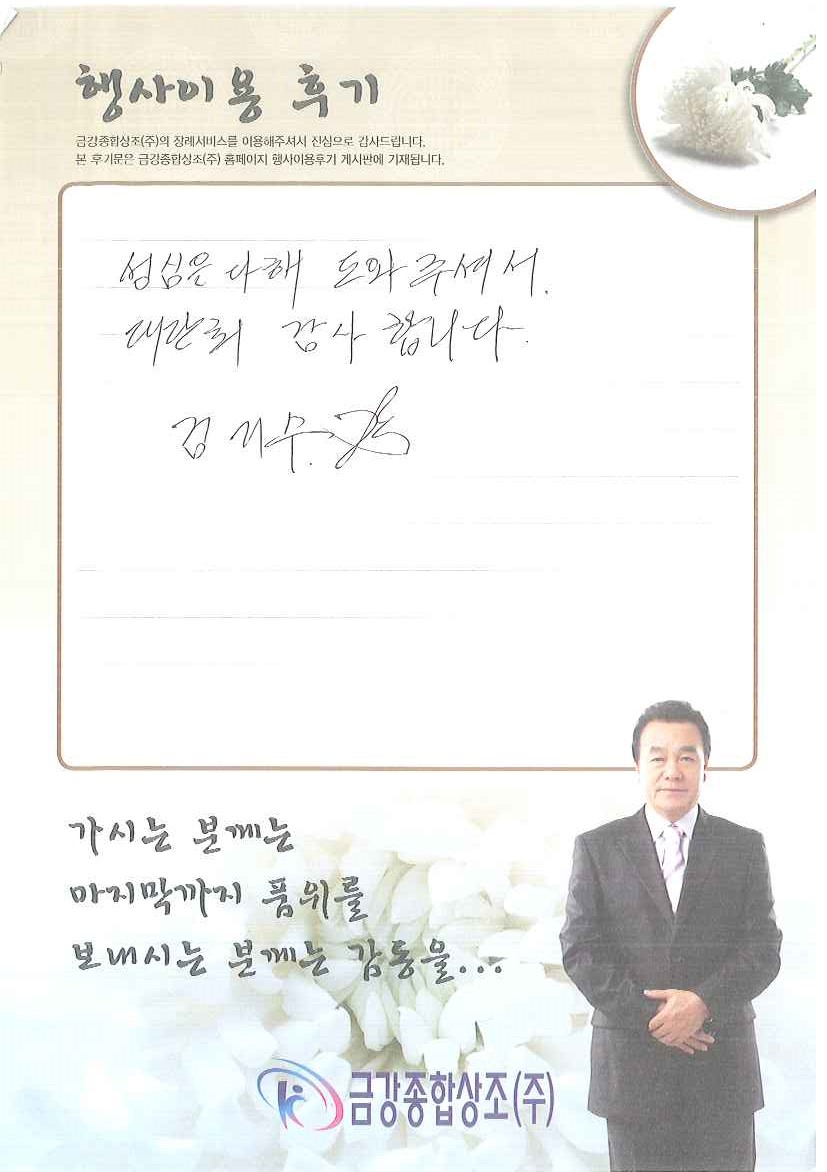 행사이용 후기
금강종합상조(주)의 장례서비스를 이용해주셔서 진심으로 감사드립니다.
본 후기문은 금강종합상조(주) 홈페이지 행사이용후기 게시판에 기재됩니다.
성심은 다해 도와 주셔서.
대단히 감사 합니다.
김지수.
가시는 분께는
마지막까지 품위를
보내시는 분께는 감동을...
금강종합상조(주)